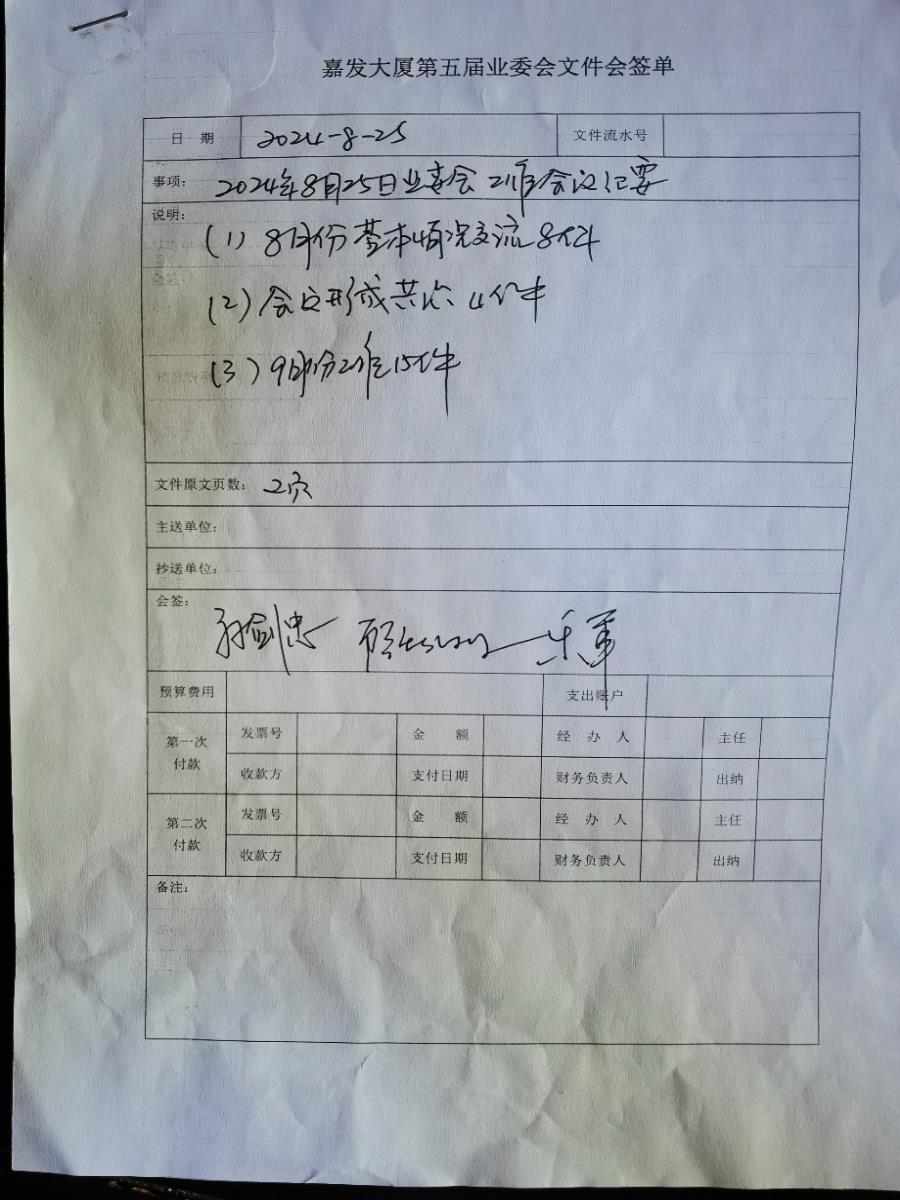 嘉发大厦第五届业委会文件会签单
日 期 2024-8-25 文件流水号
事项: 2024年8月25日业委会工作会议纪要
说明:
(1) 8月份基本情况交流8件
(2) 会议形成共识4件
(3) 9月份工作15件
文件原文页数: 2页
主送单位:
抄送单位:
会签:
孙剑忠 乐军
预算费用 支出账户
第一次付款 发票号 金 额 经 办 人 主任
收款方 支付日期 财务负责人 出纳
第二次付款 发票号 金 额 经 办 人 主任
收款方 支付日期 财务负责人 出纳
备注: